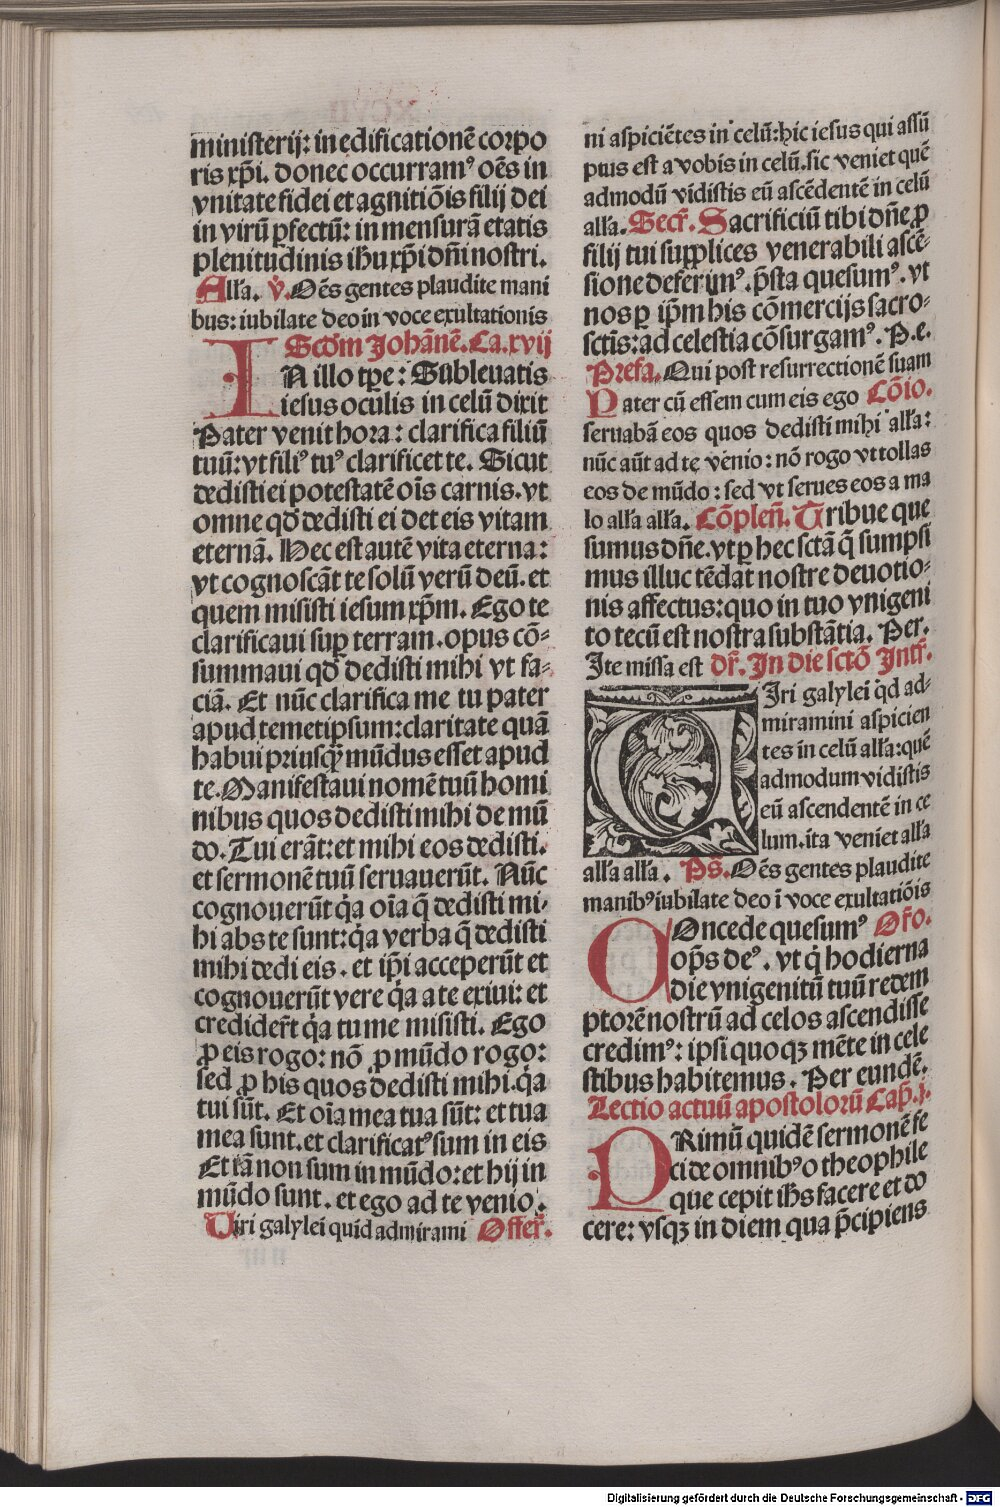 ministerij: in edificationē corpo
ris xp̄i. donec occurramꝰ oēs in
vnitate fidei et agnitiōis filij dei
in virū ꝑfectū: in mensurā etatis
plenitudinis ih̄u xp̄i dn̄i nostri.
Alľa. ꝟ. Oēs gentes plaudite mani
bus: iubilate deo in voce exultationis
Scđm Johānē. Ca. xvij
IN illo tꝑe: Subleuatis
iesus oculis in celū dixit
Pater venit hora: clarifica filiū
tuū: vt filiꝰ tuꝰ clarificet te. Sicut
dedisti ei potestatē oīs carnis. vt
omne qđ dedisti ei det eis vitam
eternā. Hec est autē vita eterna:
vt cognoscāt te solū verū deū. et
quem misisti iesum xp̄m. Ego te
clarificaui suꝑ terram. opus cō-
summaui qđ dedisti mihi vt fa-
ciā. Et nūc clarifica me tu pater
apud temetipsum: claritate quā
habui priusqꝫ mūdus esset apud
te. Manifestaui nomē tuū homi
nibus quos dedisti mihi de mū
do. Tui erāt: et mihi eos dedisti.
et sermonē tuū seruauerūt. Nūc
cognouerūt q̇a oīa q̄ dedisti mi-
hi abs te sunt: q̇a verba q̄ dedisti
mihi dedi eis. et ip̄i acceperūt et
cognouerūt vere q̇a a te exiui: et
crediderť q̇a tu me misisti. Ego
ꝓ eis rogo: nō ꝓ mūdo rogo:
sed ꝓ his quos dedisti mihi. q̇a
tui sūt. Et oīa mea tua sūt: et tua
mea sunt. et clarificatꝰ sum in eis
Et iā non sum in mūdo: et hij in
mūdo sunt. et ego ad te venio.
Uiri galylei quid admirami Offer̄.
ni aspiciētes in celū: hic iesus qui assū
ptus est a vobis in celū. sic veniet quē
admodū vidistis eū ascēdentē in celū
alľa. Secr̄. Sacrificiū tibi dn̄e ꝓ
filij tui supplices venerabili ascē-
sione deferimꝰ. p̄sta quesumꝰ. vt
nos ꝑ ip̄m his cōmercijs sacro-
sctīs: ad celestia cōsurgamꝰ. P. e.
Prefa. Qui post resurrectionē suam
Pater cū essem cum eis ego Cōio.
seruabā eos quos dedisti mihi alľa:
nūc aūt ad te venio: nō rogo vt tollas
eos de mūdo: sed vt serues eos a ma
lo alľa alľa. Cōpleñ. Tribue que
sumus dn̄e. vt ꝑ hec sctā q̄ sumpsi
mus illuc tēdat nostre deuotio-
nis affectus: quo in tuo vnigeni
to tecū est nostra substātia. Per.
Ite missa est dr̄. In die sctō Intř.
UIri galylei q̇d ad-
miramini aspicien
tes in celū alľa: quē
admodum vidistis
eū ascendentē in ce
lum. ita veniet alľa
alľa alľa. Ps̄. Oēs gentes plaudite
manibꝰ iubilate deo ī voce exultatiōis
COncede quesumꝰ Oŕo.
op̄s deꝰ. vt q̇ hodierna
die vnigenitū tuū redem
ptorē nostrū ad celos ascendisse
credimꝰ: ipsi quoqꝫ mēte in cele
stibus habitemus. Per eundē.
Lectio actuū apostolorū Cap̄. j.
PRimū quidē sermonē fe
ci de omnibꝰ o theophile
que cepit ih̄s facere et do
cere: vsqꝫ in diem qua p̄cipiens
Digitalisierung gefördert durch die Deutsche Forschungsgemeinschaft - DFG